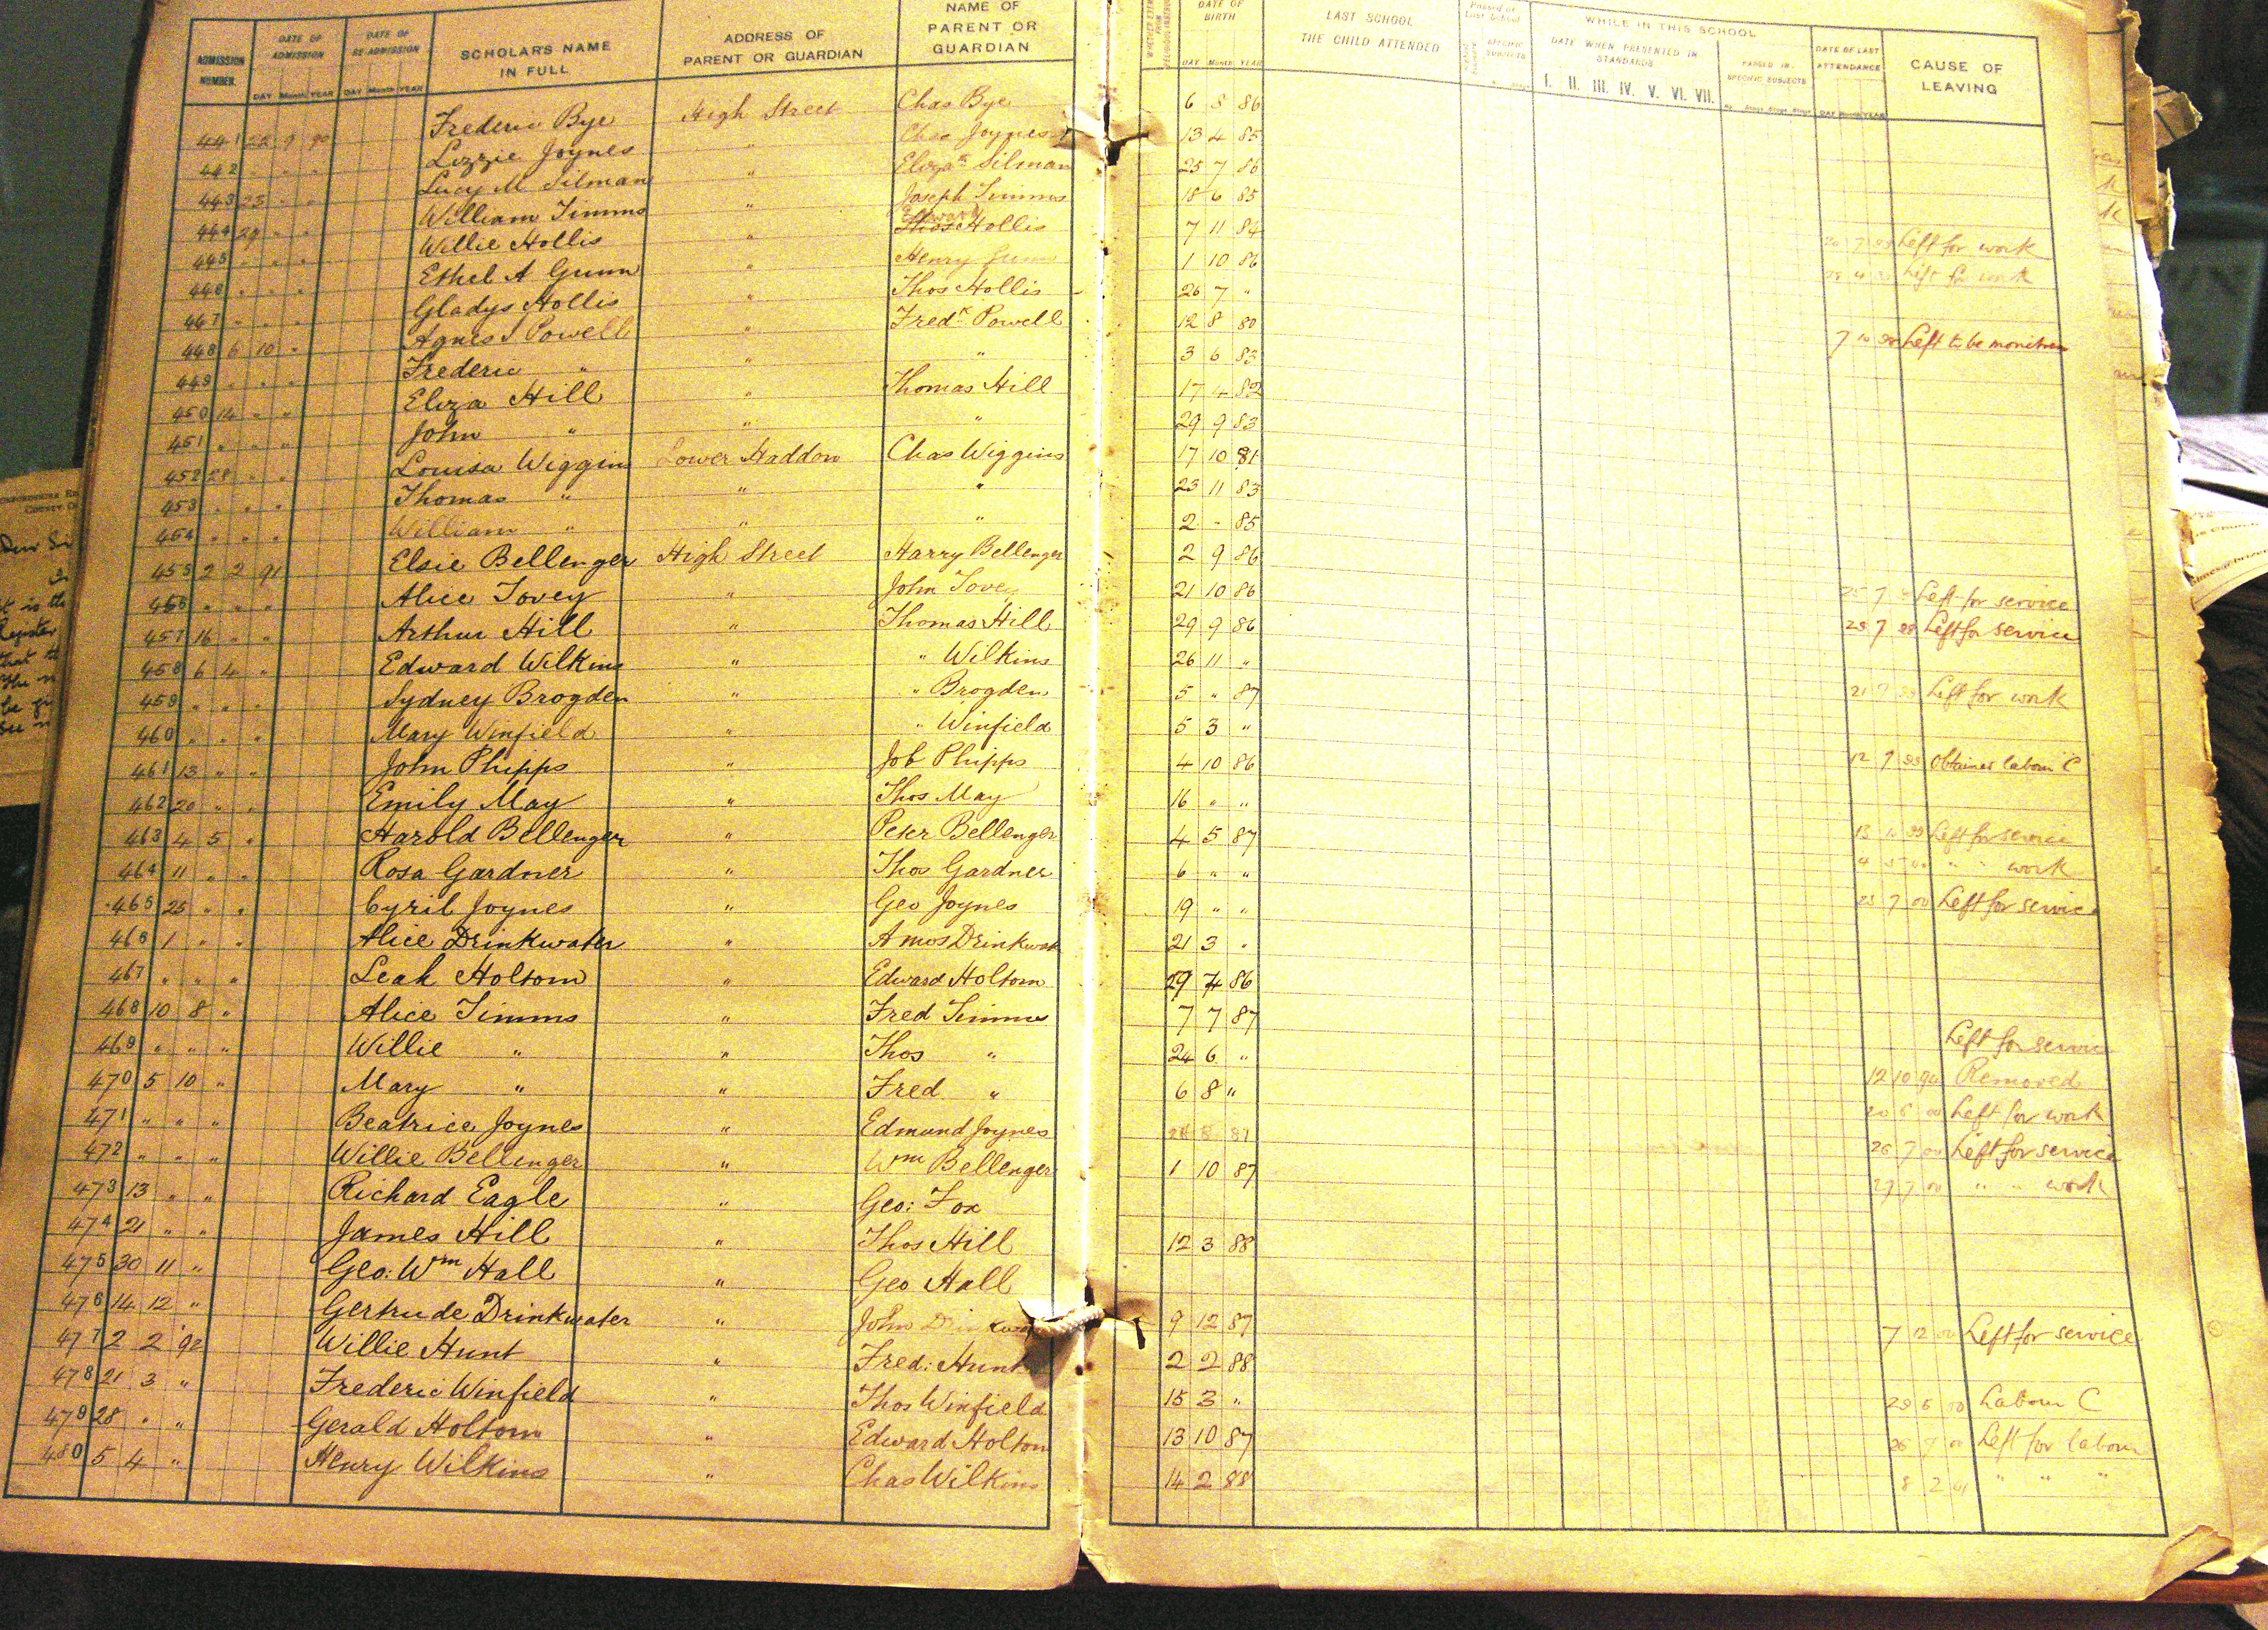 ADMISSION NUMBER. DATE OF ADMISSION DAY Month YEAR DATE OF RE-ADMISSION DAY Month YEAR SCHOLAR'S NAME IN FULL ADDRESS OF PARENT OR GUARDIAN NAME OF PARENT OR GUARDIAN DATE OF BIRTH DAY Month YEAR LAST SCHOOL THE CHILD ATTENDED WHILE IN THIS SCHOOL DATE WHEN PRESENTED IN STANDARDS I. II. III. IV. V. VI. VII. PASSED IN SPECIFIC SUBJECTS DATE OF LAST ATTENDANCE DAY Month YEAR CAUSE OF LEAVING
441 22 9 90 Frederic Bye High Street Chas Bye 6 8 86
442 " " " Lizzie Joynes " Chas Joynes 13 4 85
443 23 " " Lucy M Silman " Eliza Silman 25 7 86
444 29 " " William Timms " Joseph Timms 18 6 85
445 " " " Willie Hollis " Edward Hollis 7 11 84 Left for work
446 " " " Ethel A Gunn " Henry Gunn 1 10 86 Left for work
447 " " " Gladys Hollis " Thos Hollis 26 7 "
448 6 10 " Agnes J Powell " Fredk Powell 12 8 80 7 10 Left to be monitress
449 " " " Frederic " " " 3 6 83
450 14 " " Eliza Hill " Thomas Hill 17 4 82
451 " " " John " " " 29 9 83
452 28 " " Louisa Wiggins Lower Haddon Chas Wiggins 17 10 81
453 " " " Thomas " " " 23 11 83
454 " " " William " " " 2 " 85
455 2 2 91 Elsie Bellenger High Street Harry Bellenger 2 9 86
456 " " " Alice Tovey " John Tovey 21 10 86 25 7 Left for service
457 16 " " Arthur Hill " Thomas Hill 29 9 86 28 7 99 Left for service
458 6 4 " Edward Wilkins " " Wilkins 26 11 "
459 " " " Sydney Brogden " " Brogden 5 " 87 21 7 99 Left for work
460 " " " Mary Winfield " " Winfield 5 3 "
461 13 " " John Phipps " Job Phipps 4 10 86 12 7 99 Obtained labour C
462 20 " " Emily May " Thos May 16 " "
463 4 5 " Harold Bellenger " Peter Bellenger 4 5 87 13 10 99 Left for service
464 11 " " Rosa Gardner " Thos Gardner 6 " " 4 5 00 " " work
465 25 " " Cyril Joynes " Geo Joynes 19 " " 25 7 00 Left for service
466 1 " " Alice Drinkwater " Amos Drinkwat 21 3 "
467 " " " Leah Holtom " Edward Holtom 29 4 86
468 10 8 " Alice Timms " Fred Timms 7 7 87
469 " " " Willie " " Thos " 24 6 " Left for service
470 5 10 " Mary " " Fred " 6 8 " 12 10 94 Removed
471 " " " Beatrice Joynes " Edmund Joynes 87 20 6 00 Left for work
472 " " " Willie Bellenger " Wm Bellenger 1 10 87 26 7 00 Left for service
473 13 " " Richard Eagle " Geo: Fox 27 7 00 " " work
474 21 " " James Hill " Thos Hill 12 3 88
475 30 11 " Geo: Wm Hall " Geo Hall
476 14 12 " Gertrude Drinkwater " John 9 12 87 7 12 00 Left for service
477 2 2 92 Willie Hunt " Fred: Hunt 2 2 88
478 21 3 " Frederic Winfield " Thos Winfield 15 3 " Labour C
479 28 " " Gerald Holtom " Edward Holtom 13 10 87 26 7 00 Left for labour
480 5 4 " Henry Wilkins " Chas Wilkins 14 2 88 8 2 01 " " "